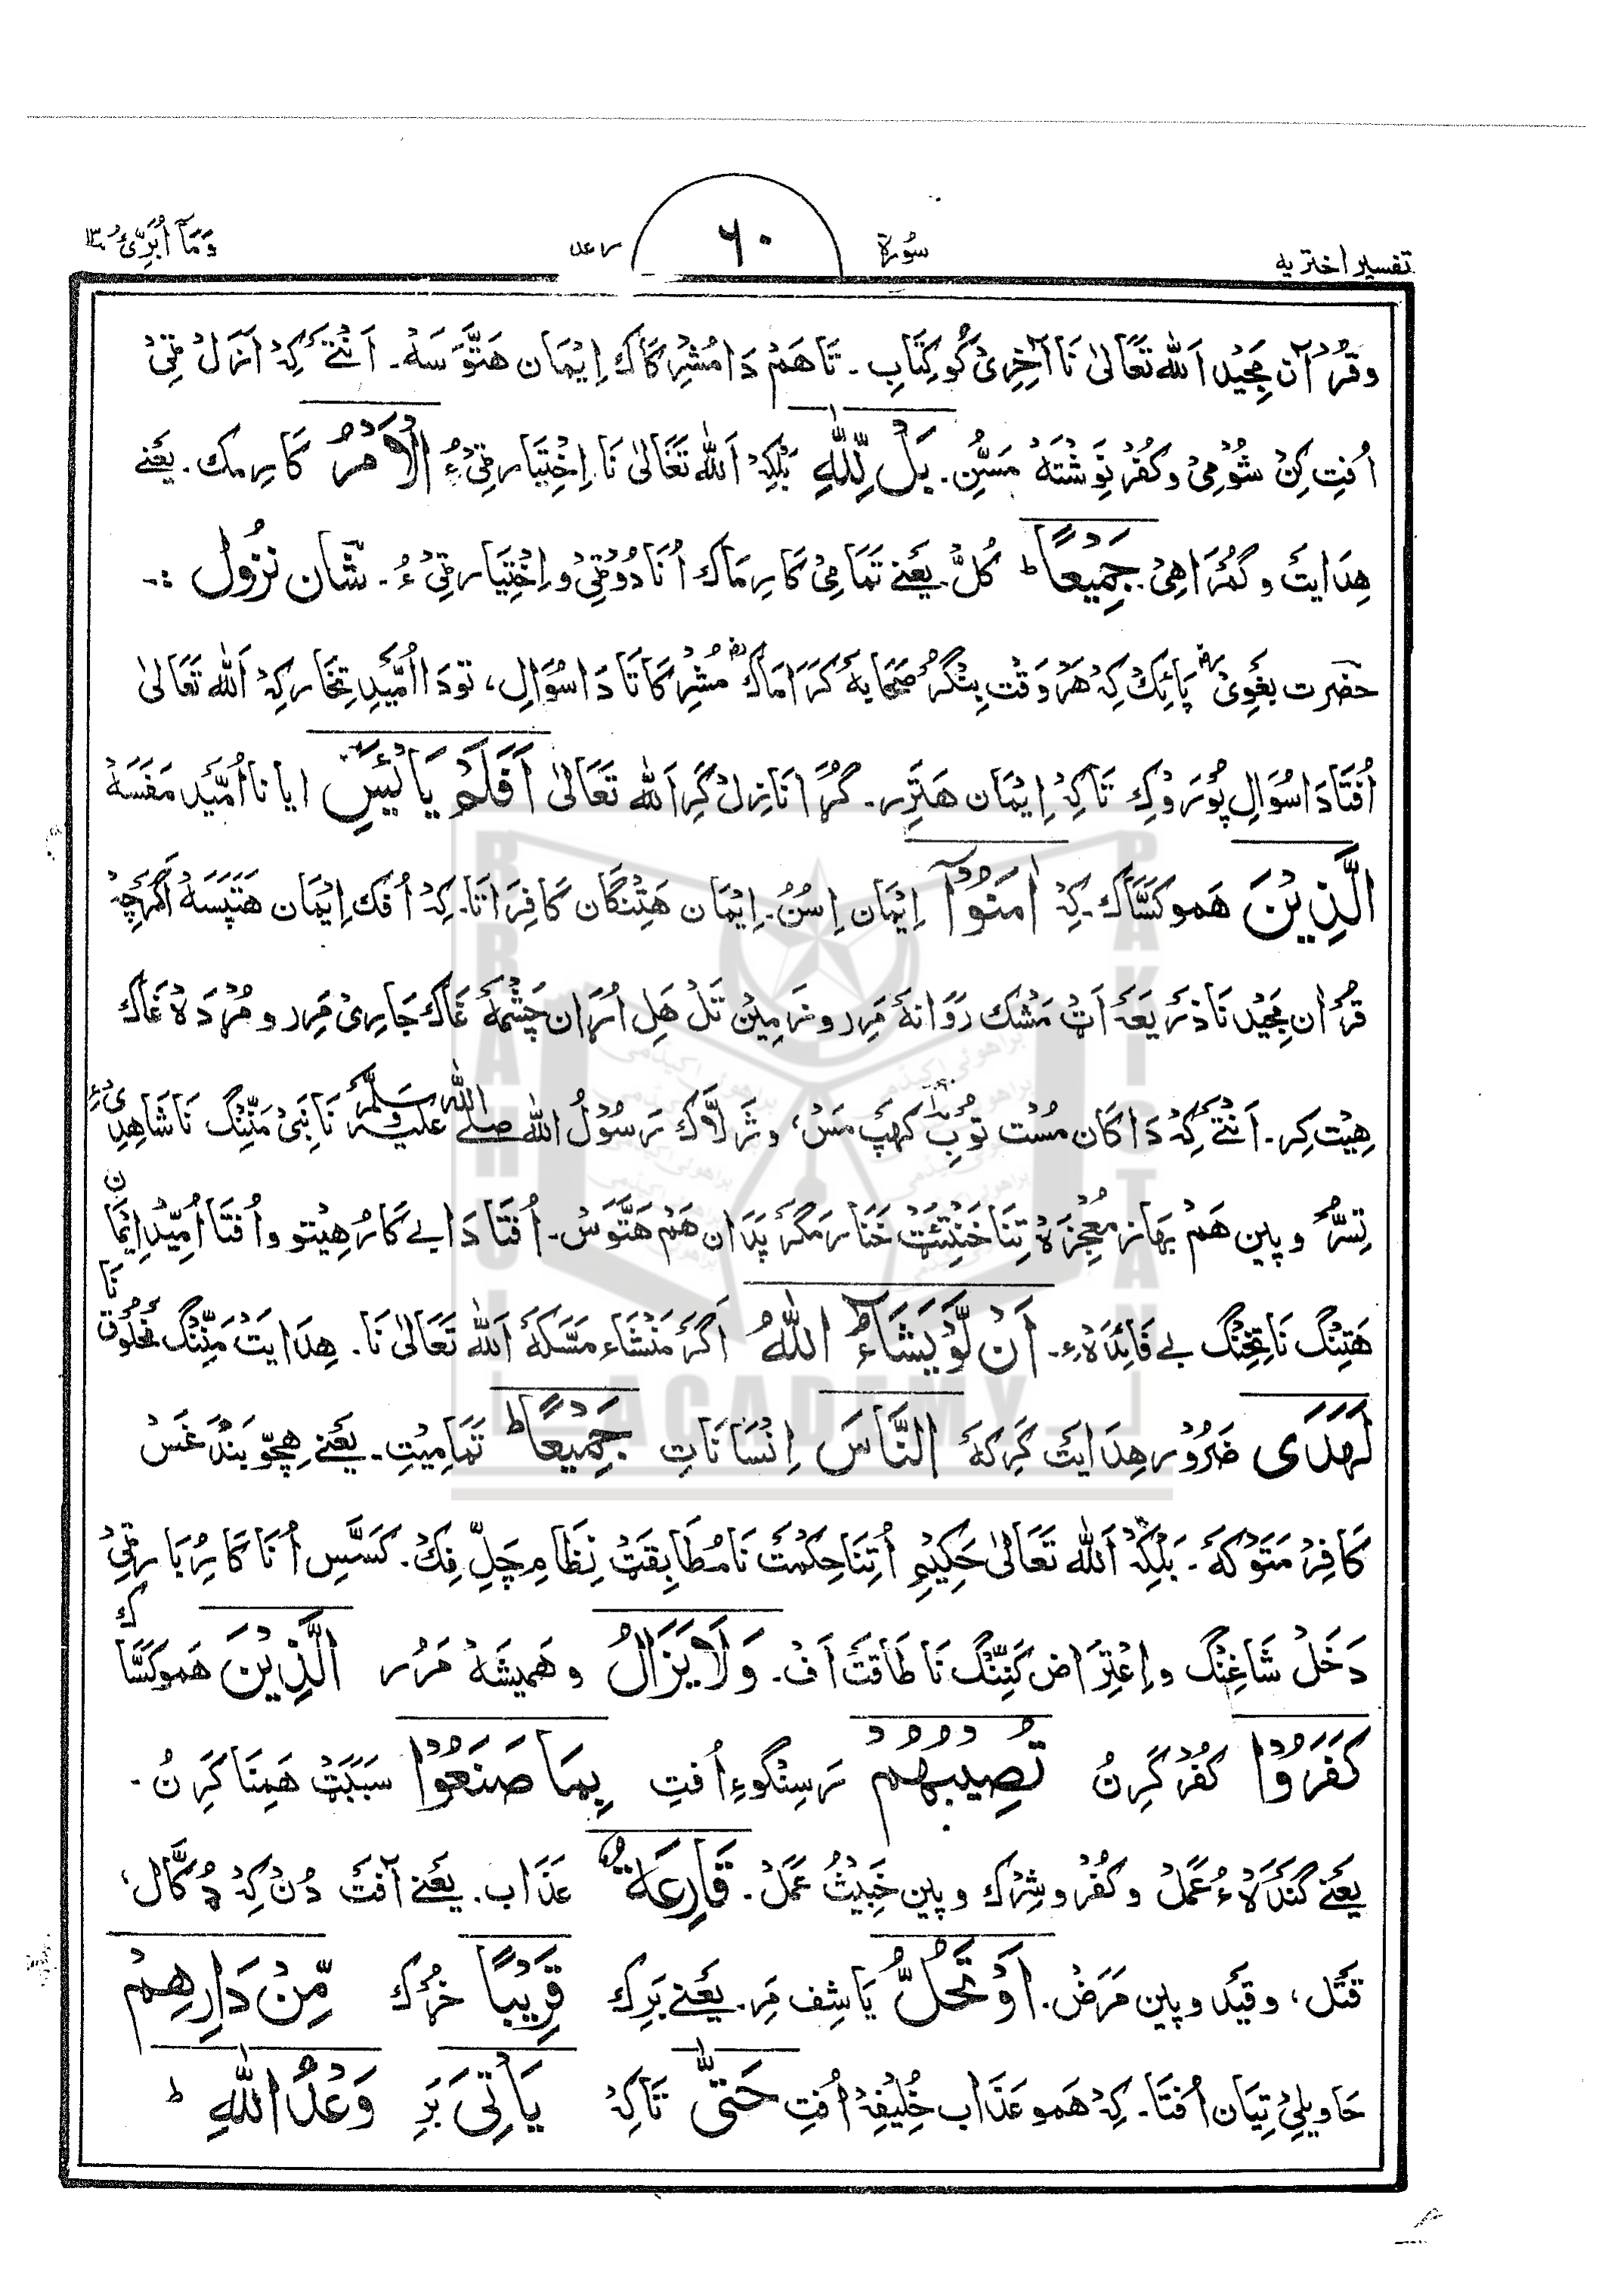 تفسیر اختریه سُورة ٦٠ رعد وَمَآ اُبَرِّئُ ١٣
وقُرْآن مَجِیْد اَللّٰه تَعَالیٰ نَا آخِرِیْ گُو کِتَابِ۔ تَاهَمْ دَا مُشْرِکَاك اِیْمَان هَتَّوْسَهْ۔ اَنْتَےْ کِهْ اَزَلْ ٹِیْ
اُفتِ کِنْ شُوْمِیْ وکُفْر نِوِشْتَهْ مَسُّنِ۔ بَلْ لِّلّٰهِ بَلْکِهْ اَللّٰه تَعَالیٰ نَا اِخْتِیَار ٹِیْ ءُ الْاَمْرُ کَارِیمك۔ یَعْنے
هِدَایتْ وگُمْرَاهِیْ۔ جَمِیْعًا ط کُلْ یَعْنے تَمَامِیْ کَارِیمَاك اُنَا دُوْٹِیْ و اِخْتِیَار ٹِیْ ءُ۔ شَان نزُول :۔
حضرت بغَوِیْ پَائِكْ کِهْ هَرْوَقْت بِنْگُرْ صَحَابهَ کَرَامَاك مُشْرِکَاتَا دَا سُوَالِ، تو دَا اُمِّیْدِ تِخَار کِهْ اَللّٰه تَعَالیٰ
اُفْتَا دَا سُوَالِ پُوْرَوْکِ تَاکِهْ اِیْمَان هَتِر۔ گُرَّا نَازِلْ کَرِ اَللّٰه تَعَالیٰ اَفَلَمْ یَایْئَسِ ایا نا اُمِّیْد مَفَسَهْ
الَّذِیْنَ هَمو کَسَّاك۔ کِهْ اٰمَنُوْآ اِیْمَان اِسُنْ۔ اِیْمَان هَتِنْگَان کَافِرَاتَا۔ کِهْ اُفك اِیْمَان هَتَپَسَهْ اَگَرْچِهْ
قُرْآن مَجِیْد نَا ذَرِیْعَهَ اَٹْ مَشك رَوَانهَ مَرِر و زمِیْن تَلْ هَلِ اُرَان چَشْمهَ غَاك جَارِیْ مَرِر و مُرْدَهْ غَاك
هِیْت کِر۔ اَنْتَےْ کِهْ دَاکَان مُسْت تو بِ کَهپَ مَسْ، وثَرْ لَاك رَسُوْلُ اللّٰه صلے اللّٰه علیه وسلم نَا نَبِیْ مَنِّنْگ نَا شَاهِدِیْ ءِ
تِسُّرْ و پِین هَمْ بهَاز مُعْجِزَهْ تِنَا خَنْتَٹْ خَنَار مَگَرْ پَدَان هَمْ هَتَّوْسْ۔ اُفْتَا دَا بے کَارُ هِیْتو و اُفْتَا اُمِّیْدِ اِیْمَان
هَتِنْگ نَا تِخِنْگ بے فَائِدَهْءِ۔ اَنْ لَّوْ یَشَآءُ اللّٰهُ اَگَرَ مَنْشَاء مَسَّکَهَ اَللّٰه تَعَالیٰ نَا۔ هِدَایَتْ مَنِّنْگ مَخْلُوْق نَا
لَهَدَی ضَرُوْر هِدَایتَ کَرِکَهَ النَّاسَ اِنْسَانَاتِ جَمِیْعًا ط تَمَامِیْتِ۔ یَعْنے هِچّو بَنْدَغَسْ
کَافِرْ مَتَوْکَهَ۔ بَلْکِهْ اَللّٰه تَعَالیٰ حَکِیْمِ اُتِنَا حِکْمَتَ نَا مُطَابِقَتْ نِظَامِ چَلِّفِكْ۔ کَسَّسِ اُنَا کَارُبَار ٹِیْ
دَخَلْ شَاغِنْگ و اِعْتِرَاض کَنِّنْگ نَا طَاقَتْ اَفْ۔ وَلَا یَزَالُ و هَمِیْشَهْ مَرُر الَّذِیْنَ هَمو کَسَّاك
کَفَرُوْا کُفْر کَرِنُ تُصِیْبُهُمْ رَسِنْگو ءِ اُفتِ بِمَا صَنَعُوْا سَبَبَٹْ هَمِنَا کَرِنُ۔
یَعْنے گَنْدَهْ ءُ عَمَلْ وکُفْر و شِرْك و پِین خَبِیْثُ عَمَلْ۔ قَارِعَةٌ عَذَاب۔ یَعْنے آفَتْ دُنْ کِهْ دُکَّال،
قَتْل، وقَیْد و پِین مَرَضْ۔ اَوْ تَحُلُّ یَا شِف مَرِ۔ یَعْنے بَرِك قَرِیْبًا خُرْك مِّنْ دَارِهِمْ
حَاوِیلِیْ تِیَان اُفْتَا۔ کِهْ هَمو عَذَاب خُلِیْفِهْ اُفتِ حَتّٰی تَاکِهْ یَاْتِیَ بَرِ وَعْدُ اللّٰهِ ط
BRAHUI ACADEMY PAKISTAN
براهوئی اکیڈمی